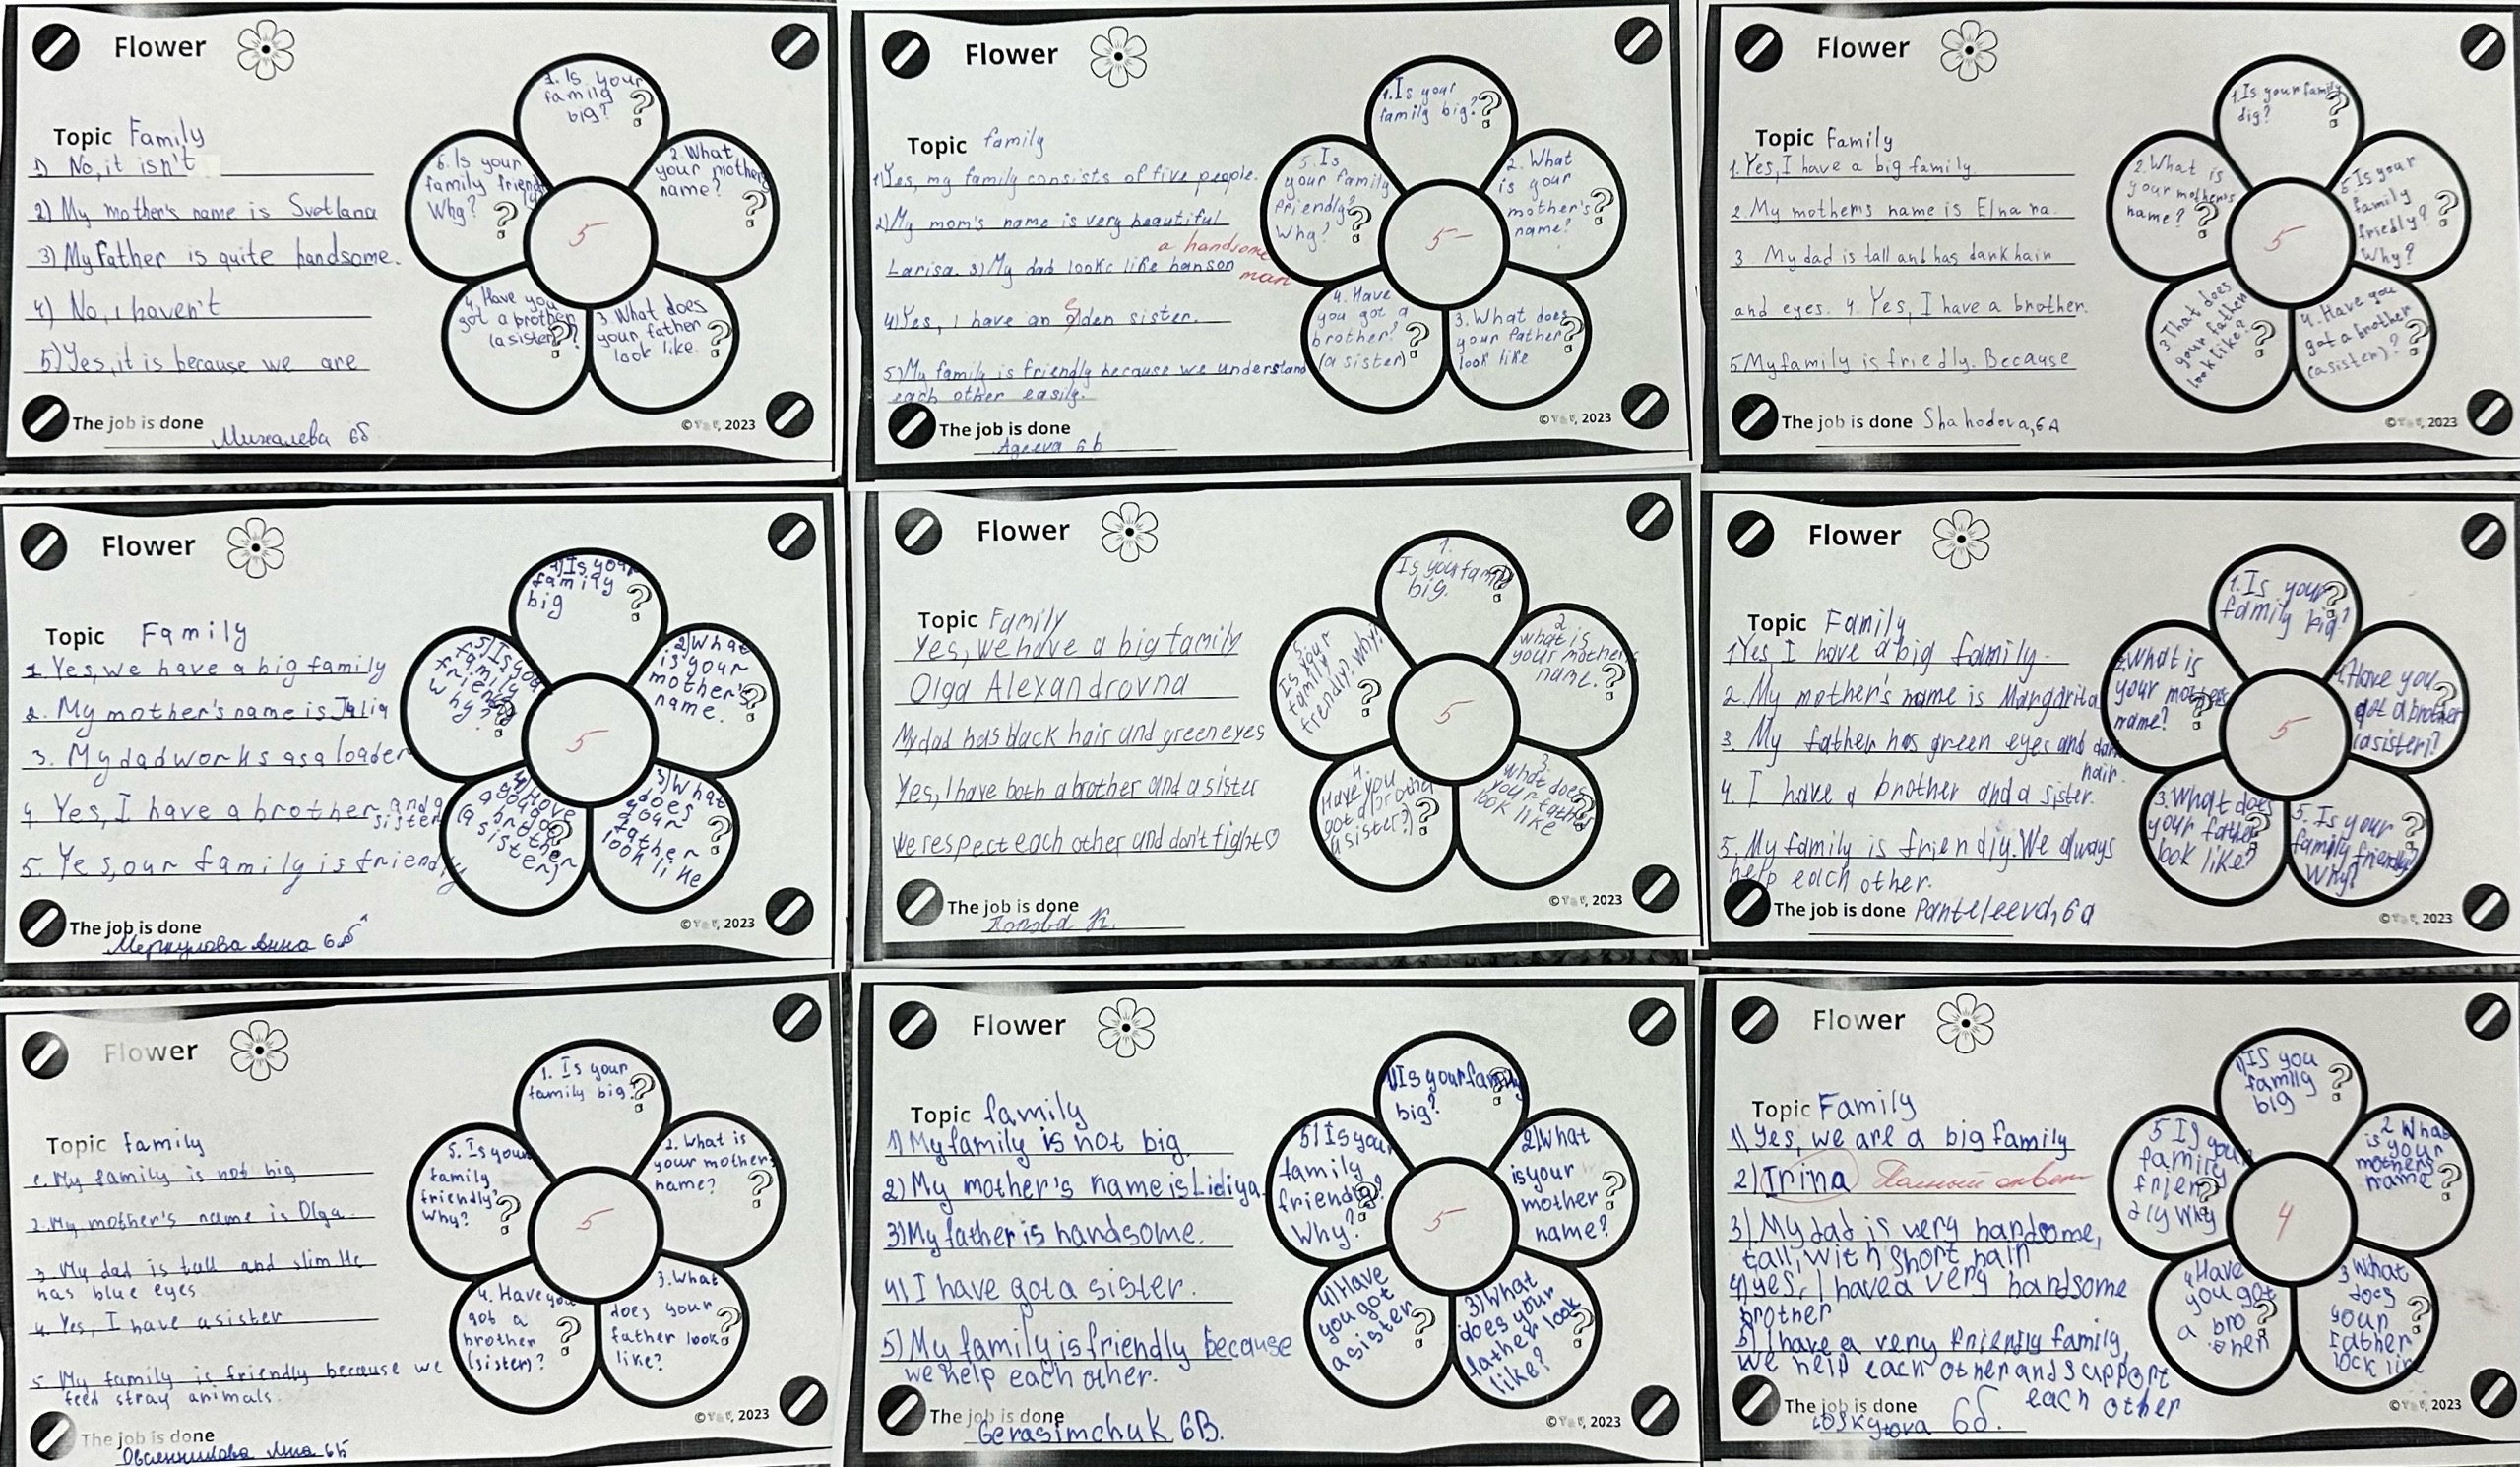 Flower
1. Is your
family
big?
Topic Family
1) No, it isn't
2) My mother's name is Svetlana
3) My Father is quite handsome.
4) No, i haven't
5) Yes, it is because we are
6. Is your
family friendly
Why?
2. What
your mother
name?
5
4. Have you
got a brother
(a sister)?
3. What does
your father
look like.
The job is done
Михалева 6б
© 2023
Flower
1. Is your
family big?
Topic family
1) Yes, my family consists of five people.
2) My mom's name is very beautiful
a handsome
man
Larisa. 3) My dad lookc like hanson
4) Yes, I have an elden sister.
5) My family is friendly because we understand
each other easily.
5. Is
your family
friendly?
Why?
2. What
is your
mother's
name?
5-
4. Have
you got a
brother?
(a sister)
3. What does
your father
look like
The job is done
Ageeva 6b
© 2023
Flower
1. Is your family
dig?
Topic Family
1. Yes, I have a big family.
2. My mother's name is Elnara.
3 My dad is tall and has dark hair
and eyes. 4. Yes, I have a brother.
5 My family is friedly. Because
2. What is
your mother's
name?
5. Is your
family
friedly?
Why?
5
3 That does
your father
look like?
4. Have you
got a brother
(a sister)?
The job is done Shahodova, 6A
© 2023
Flower
1) Is your
family
big
Topic Family
1. Yes, we have a big family
2. My mother's name is Julia
3. My dad works as a loader
4 Yes, I have a brother and a
sister
5. Yes, our family is friendly
5) Is you
family
friend
why?
2) What
is your
mother's
name.
5
4) Have
you
got
a brother
(a sister)
3) What
does
your
father
look like
The job is done
Меркулова Анна 6б
© 2023
Flower
1.
Is your family
big.
Topic Family
Yes, we have a big family
Olga Alexandrovna
My dad has black hair and green eyes
Yes, I have both a brother and a sister
We respect each other and don't fight♡
5.
Is your
family
friendly? Why?
2
what is
your mother
name.
5
4.
Have you
got a brother
(a sister?)
3.
What does
your father
look like
The job is done
Попова К.
© 2023
Flower
1. Is your
family big?
Topic Family
1 Yes, I have a big family.
2. My mother's name is Margarita
3. My father has green eyes and dark
hair.
4. I have a brother and a sister.
5. My family is friendly. We always
help each other.
2. What is
your mother's
name?
4. Have you
got a brother
(a sister)?
5
3. What does
your father
look like?
5. Is your
family friendly?
Why?
The job is done Panteleeva, 6a
© 2023
Flower
1. Is your
family big?
Topic family
1. My family is not big
2. My mother's name is Olga.
3 My dad is tall and slim He
has blue eyes
4. Yes, I have a sister
5 My family is friendly because we
feed stray animals.
5. Is your
family
friendly?
Why?
2. What is
your mother
name?
5
4. Have you
got a
brother
(sister)?
3. What
does your
father look
like?
The job is done
Овсянникова Анна 6б
© 2023
Flower
1) Is your family
big?
Topic family
1) My family is not big.
2) My mother's name is Lidiya.
3) My father is handsome.
4) I have got a sister.
5) My family is friendly because
we help each other.
5) Is your
family
friendly?
Why?
2) What
is your
mother
name?
5
4) Have
you got
a sister
3) What
does your
father look
like?
The job is done
Gerasimchuk 6B.
© 2023
Flower
1) Is you
family
big
Topic Family
1) Yes, we are a big family
2) Irina Полный ответ
3) My dad is very handsome,
tall, with short hair
4) yes, I have a very handsome
brother
5) I have a very friendly family,
we help each other and support
each other
5 Is your
family
frien
dly Why
2 What
is your
mothers
name
4
4 Have
you got
a bro
ther
3 What
does
your
father
look like
The job is done
6б.
© 2023